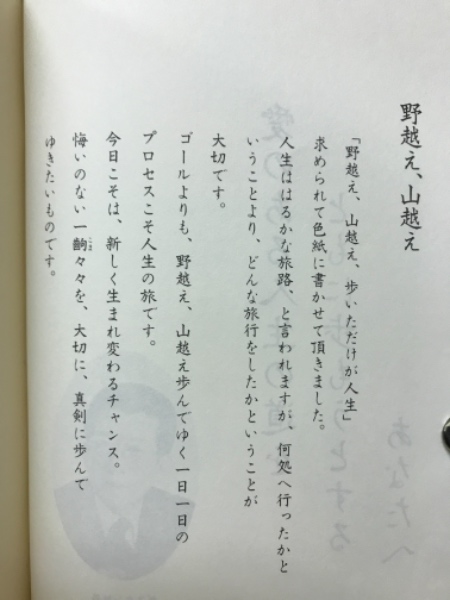 野越え、山越え
「野越え、山越え、歩いただけが人生」
求められて色紙に書かせて頂きました。
人生ははるかな旅路、と言われますが、何処へ行ったかと
いうことより、どんな旅行をしたかということが
大切です。
ゴールよりも、野越え、山越え歩んでゆく一日一日の
プロセスこそ人生の旅です。
今日こそは、新しく生まれ変わるチャンス。
悔いのない一齣々々を、大切に、真剣に歩んで
ゆきたいものです。
あなたへ